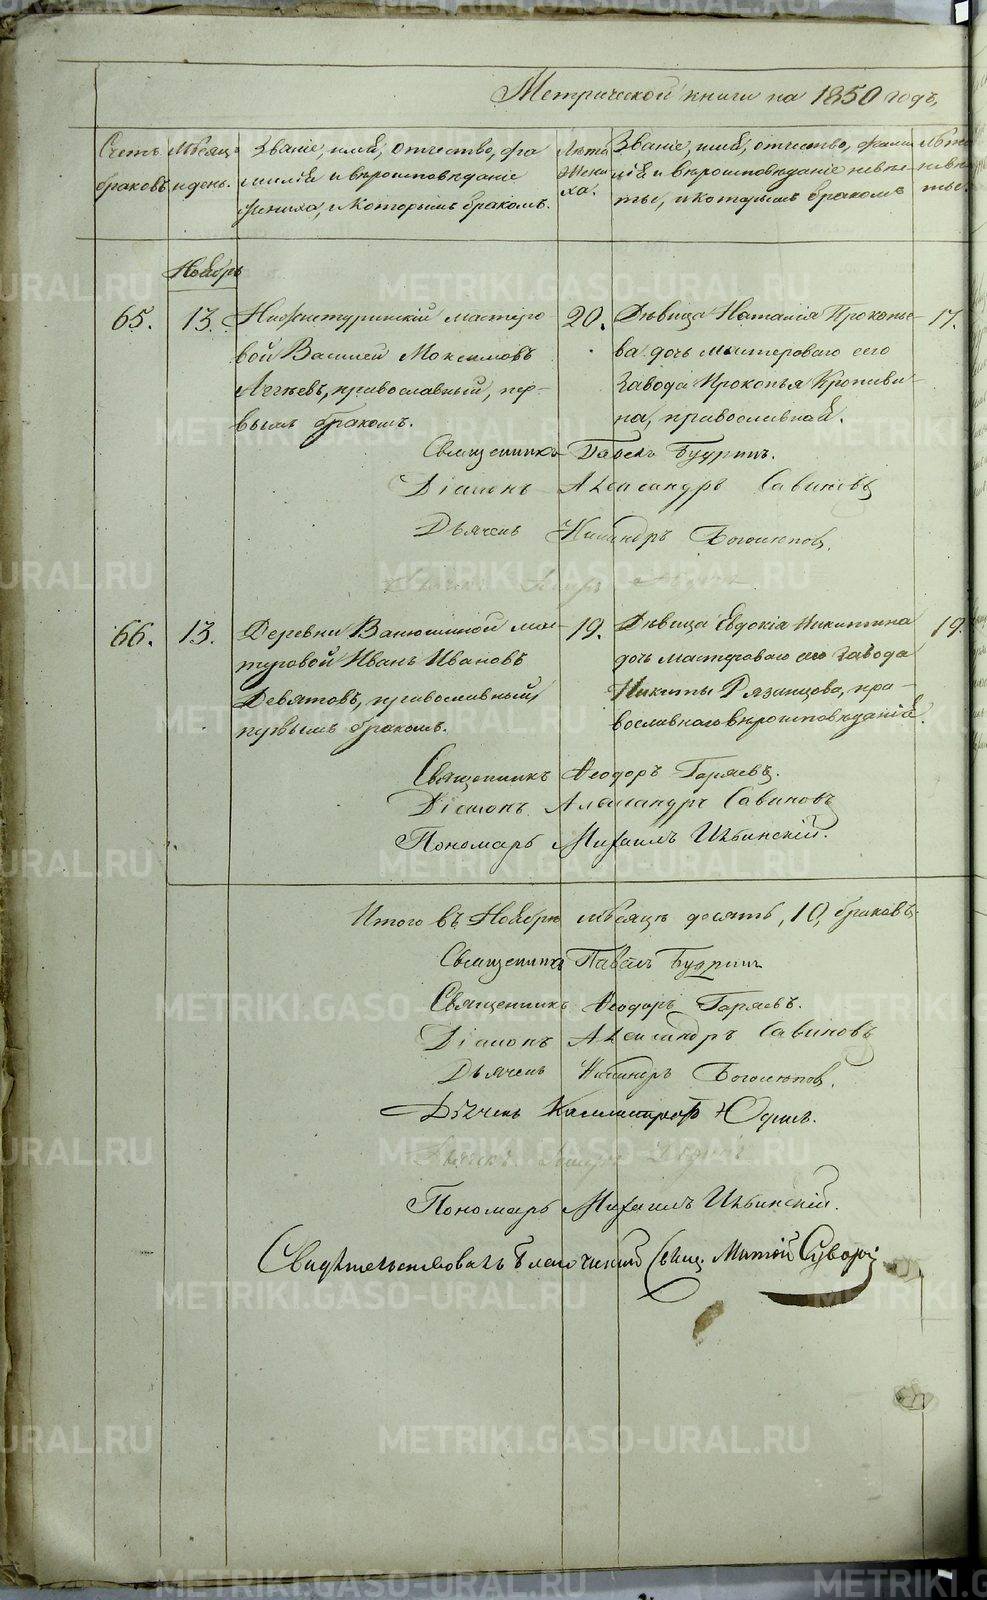 Метрической книги на 1850 годъ,
Счетъ браковъ
Мѣсяцъ и день.
Званіе, имя, отчество, фа
миліѣ и вѣроисповѣданіе
жениха, и которымъ бракомъ.
Лѣта жени
ха.
Званіе, имя, отчество, фами
ліѣ и вѣроисповѣданіе невѣс
ты, и которымъ бракомъ
Лѣта невѣс
ты.
Ноябрь
65. 13.
Нижнетуринскій мастеро
вой Василей Максимовъ
православный, пер-
вымъ бракомъ.
20.
Дѣвица Наталія Прокопье-
ва дочь мастероваго сего
завода Прокопья Кропиви-
на, православной.
17.
Священникъ Павелъ Будринъ.
Діаконъ Александръ Савиновъ
Дьячекъ Никандръ
66. 13.
Деревни Ванюшиной мас-
теровой Иванъ Ивановъ
Девятовъ, православный,
первымъ бракомъ.
19.
Дѣвица Евдокія Никитина
дочь мастероваго сего завода
Никиты Рязанцова, пра-
вославнаго вѣроисповѣданія.
19.
Священникъ Ѳеодоръ Горяевъ.
Діаконъ Александръ Савиновъ
Пономарь Михаилъ Ильинскій.
Итого въ Ноябрѣ мѣсяцѣ десять, 10, браковъ.
Священникъ Павелъ Будринъ
Священникъ Ѳеодоръ Горяевъ.
Діаконъ Александръ Савиновъ
Дьячекъ Никандръ
Дьячекъ Каллистратъ Юдинъ.
Пономарь Михаилъ Ильинскій.
Свидѣтельствовалъ Благочинный Свящ. Суворовъ
METRIKI.GASO-URAL.RU